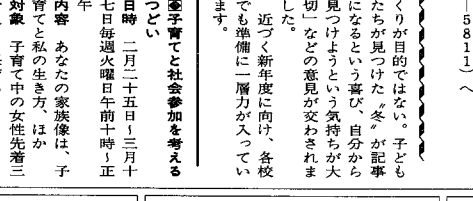 ―5811）へ
くりが目的ではない。子ども
たちが見つけた〝冬〟が記事
になるという喜び、自分から
見つけようという気持ちが大
切」などの意見が交わされま
した。
　近づく新年度に向け、各校
でも準備に一層力が入ってい
ます。
◆子育てと社会参加を考える
つどい
日時　二月二十五日～三月十
七日毎週火曜日午前十時～正
午
内容　あなたの家族像は、子
育てと私の生き方、ほか
対象　子育て中の女性先着三